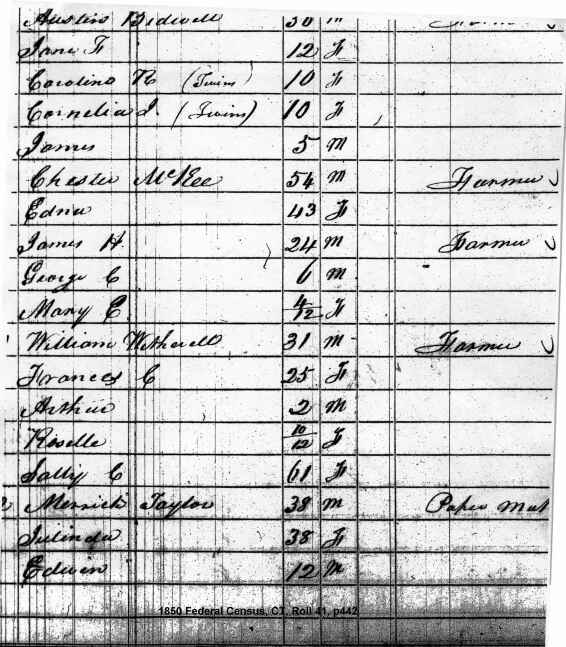 Austin Bidwell 30 m
Jane F 12 F
Caroline R (Twins) 10 F
Cornelia J. (Twins) 10 F
James 5 m
Chester McKee 54 m Farmer
Edna 43 F
James H. 24 m Farmer
George C 6 m
Mary E. 4/12 F
William Wetherell 31 m Farmer
Frances C 25 F
Arthur 2 m
Roselle 10/12 F
Sally C 61 F
Merrick Taylor 38 m Paper Mak
Julinda 38 F
Edwin 12 m
1850 Federal Census, CT, Roll 41, p442